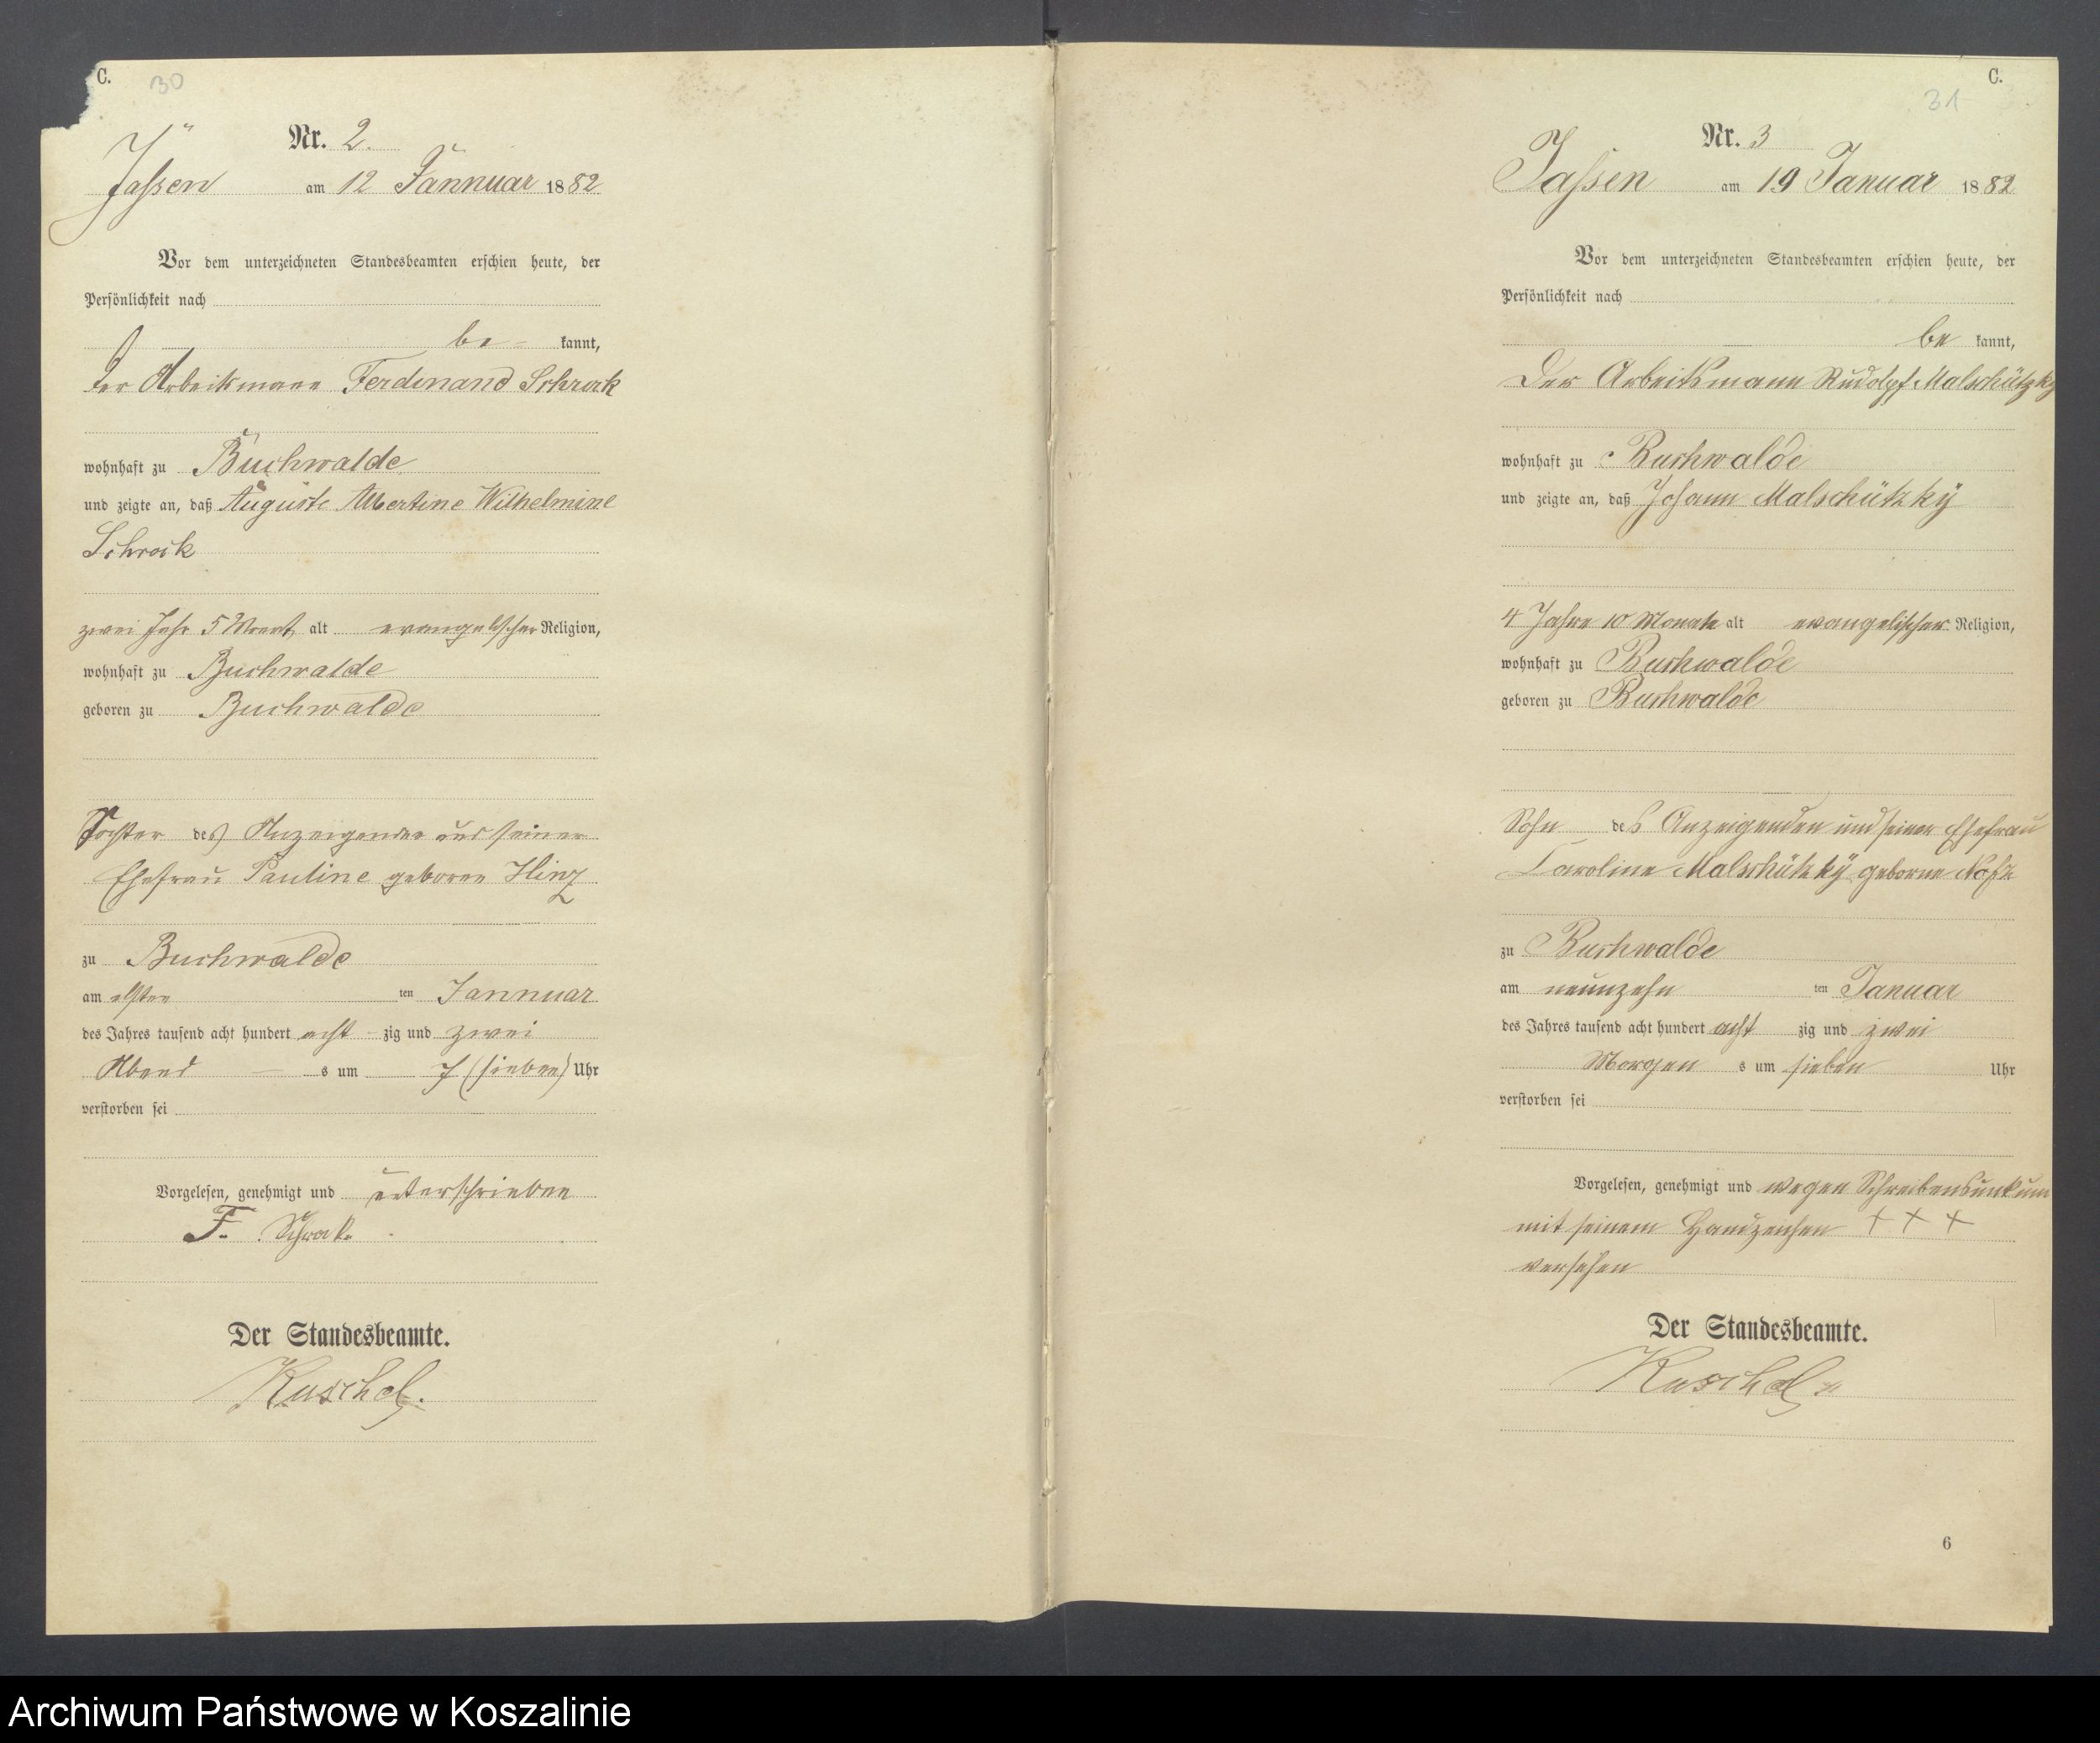 C.
30
Nr. 2.
Jassen am 12 Jannuar 1882
Vor dem unterzeichneten Standesbeamten erschien heute, der
Persönlichkeit nach
be- kannt,
der Arbeitsmann Ferdinand Schrock
wohnhaft zu Buchwalde
und zeigte an, daß Auguste Albertine Wilhelmine
Schrock
zwei Jahr 5 Monat alt evangelischer Religion,
wohnhaft zu Buchwalde
geboren zu Buchwalde
Tochter des Anzeigenden und seiner
Ehefrau Pauline geboren Hinz
zu Buchwalde
am elften ten Jannuar
des Jahres tausend acht hundert acht - zig und zwei
Abend s um 7 (sieben) Uhr
verstorben sei
Vorgelesen, genehmigt und unterschrieben
F. Schrock
Der Standesbeamte.
Kuschel.
C.
31
Nr. 3
Jassen am 19 Januar 1882
Vor dem unterzeichneten Standesbeamten erschien heute, der
Persönlichkeit nach
be kannt,
Der Arbeitsmann Rudolpf Malschützky
wohnhaft zu Buchwalde
und zeigte an, daß Johann Malschützky
4 Jahre 10 Monate alt evangelischer Religion,
wohnhaft zu Buchwalde
geboren zu Buchwalde
Sohn des Anzeigenden und seiner Ehefrau
Caroline Malschützky geborne
zu Buchwalde
am neunzehn ten Januar
des Jahres tausend acht hundert acht zig und zwei
Morgen s um sieben Uhr
verstorben sei
Vorgelesen, genehmigt und wegen Schreibensunkun
mit seinem Handzeichen + + +
versehen
Der Standesbeamte.
Kuschel
6
Archiwum Państwowe w Koszalinie